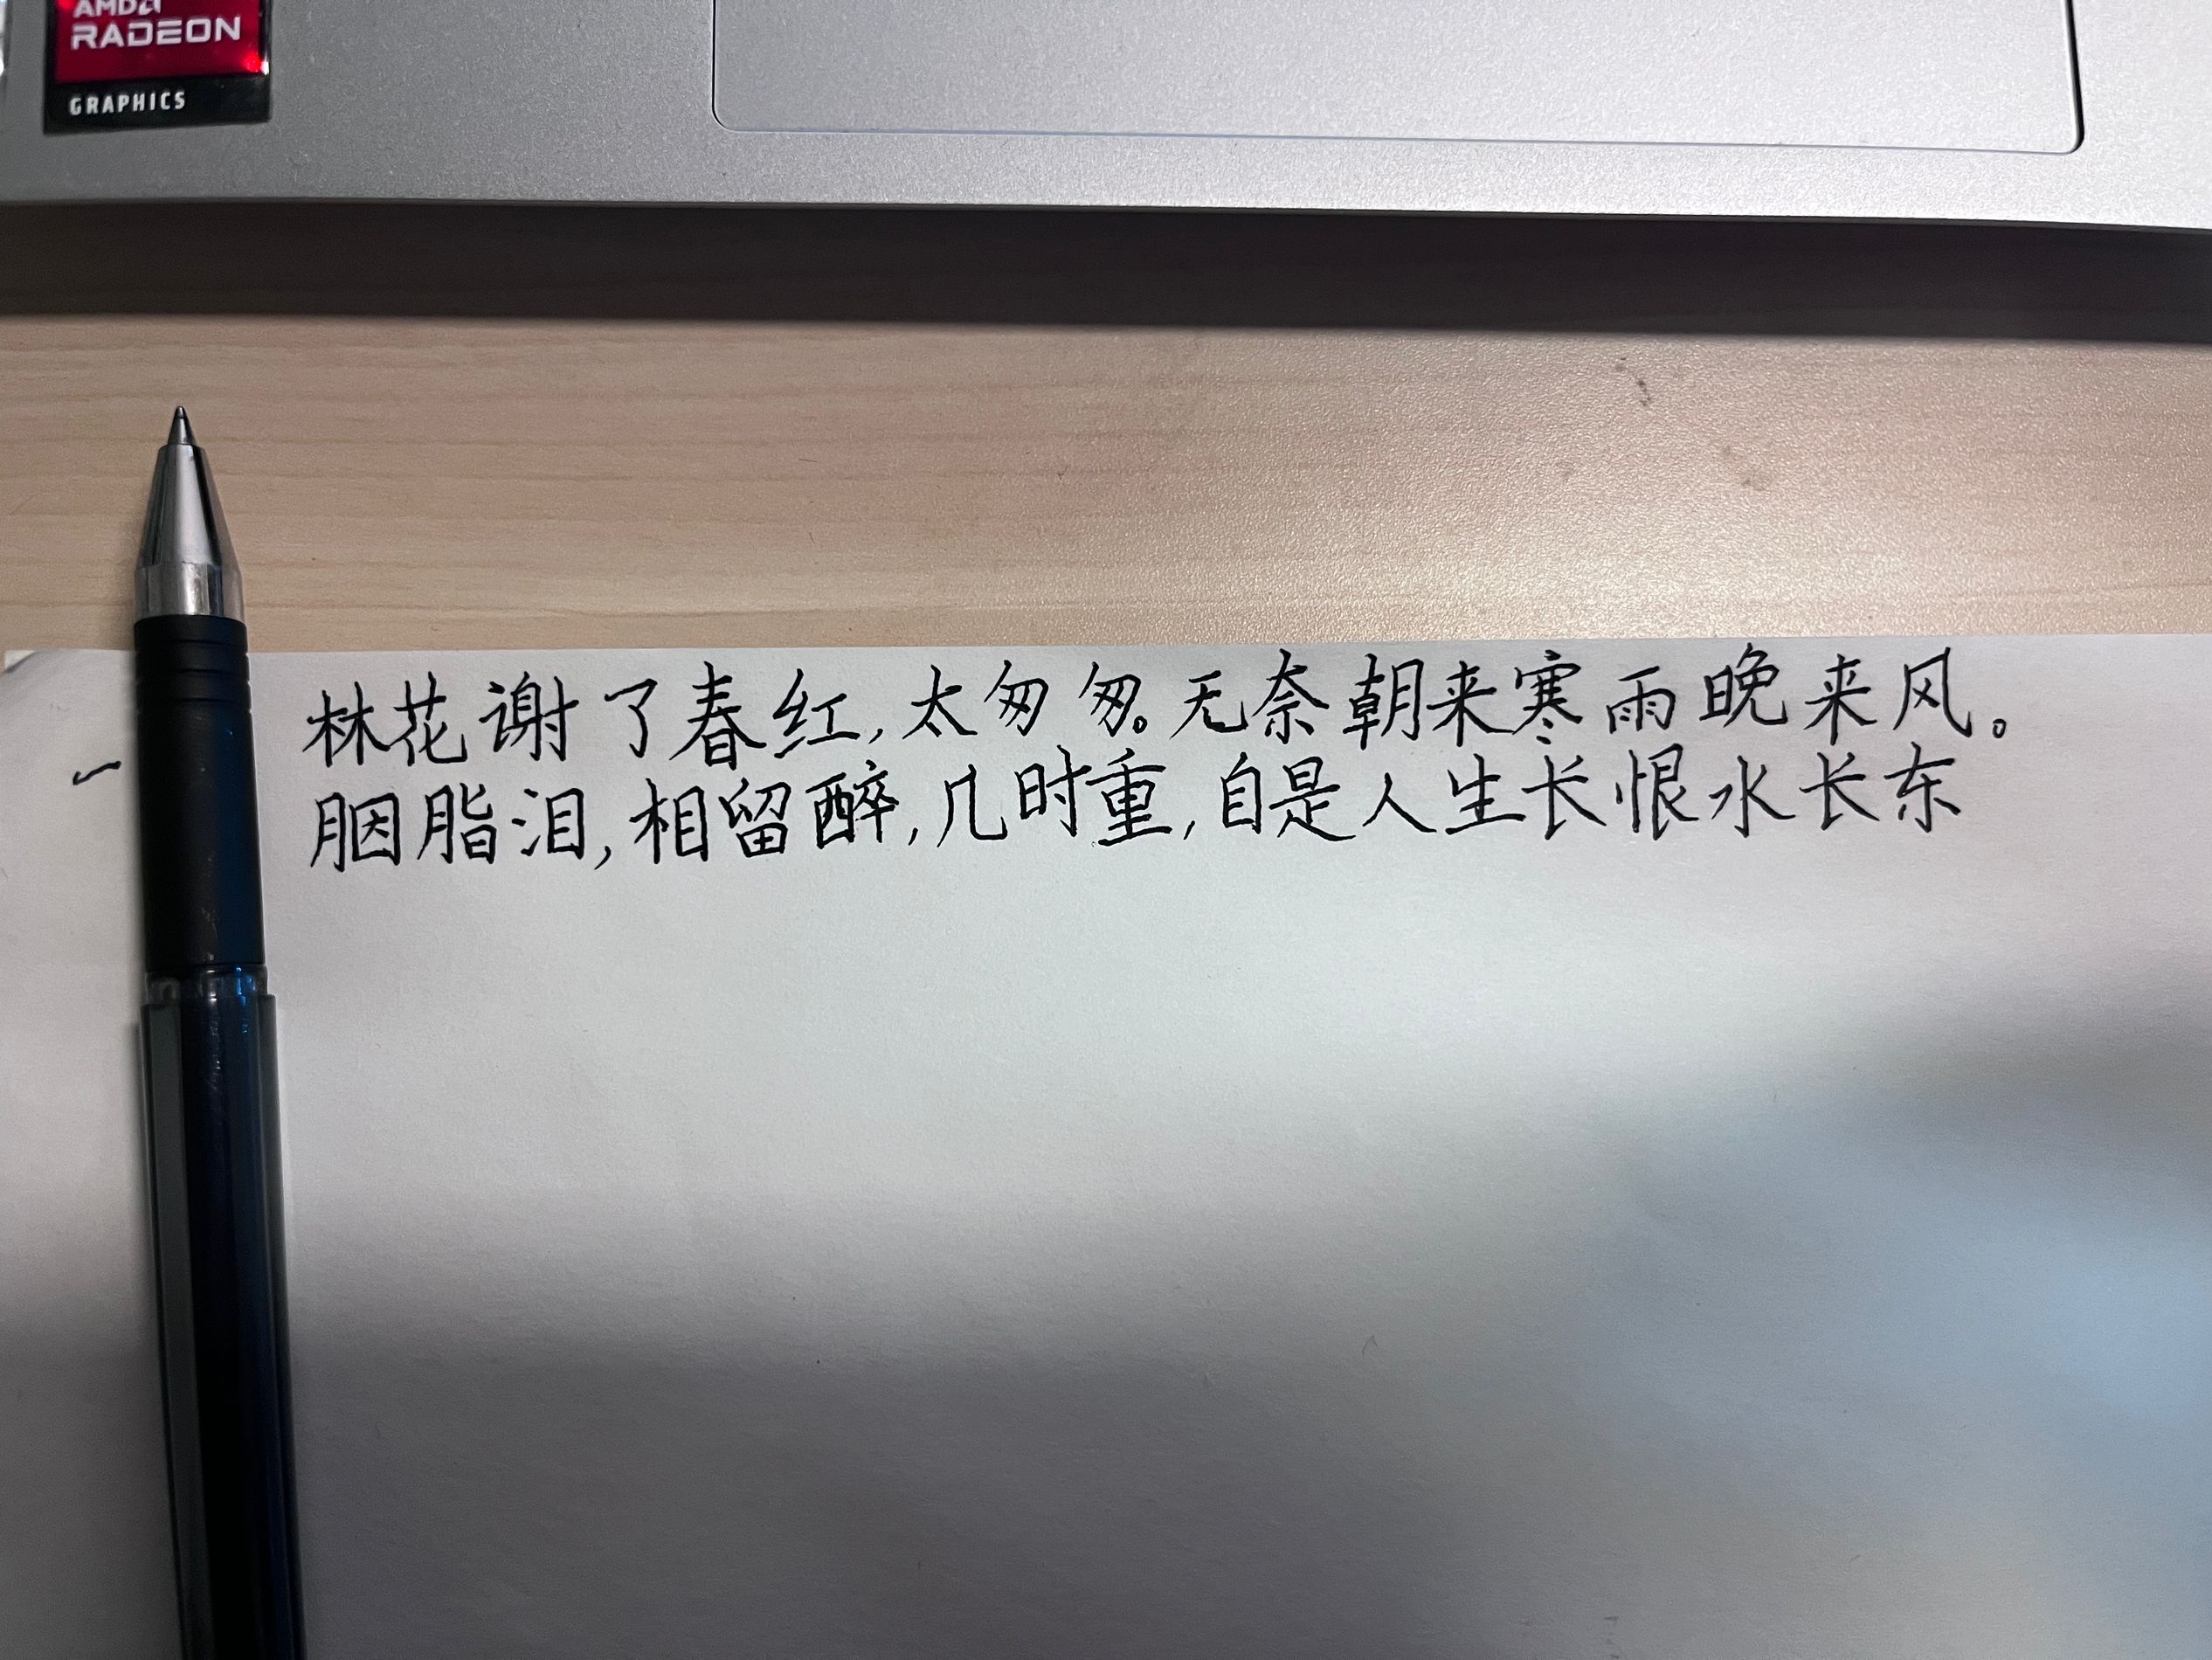 AMD
RADEON
GRAPHICS
林花谢了春红,太匆匆。无奈朝来寒雨晚来风。
胭脂泪,相留醉,几时重,自是人生长恨水长东